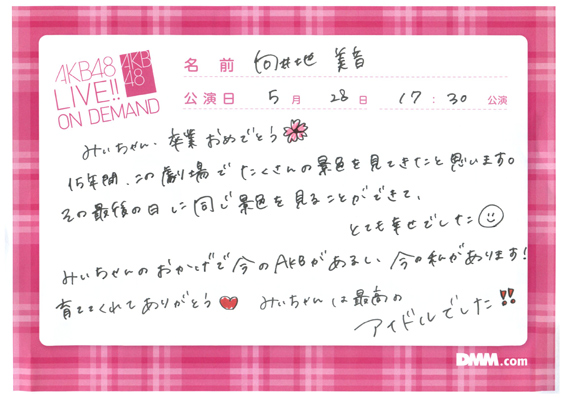 AKB48
LIVE!!
ON DEMAND
AKB
48
名前 向井地 美音
公演日 5月 28日 17:30 公演
みぃちゃん、卒業おめでとう
15年間、この劇場でたくさんの景色を見てきたと思います。
その最後の日に同じ景色を見ることができて、
とても幸せでした
みぃちゃんのおかげで今のAKBがあるし、今の私があります!
育ててくれてありがとう みぃちゃんは最高の
アイドルでした!!
DMM.com